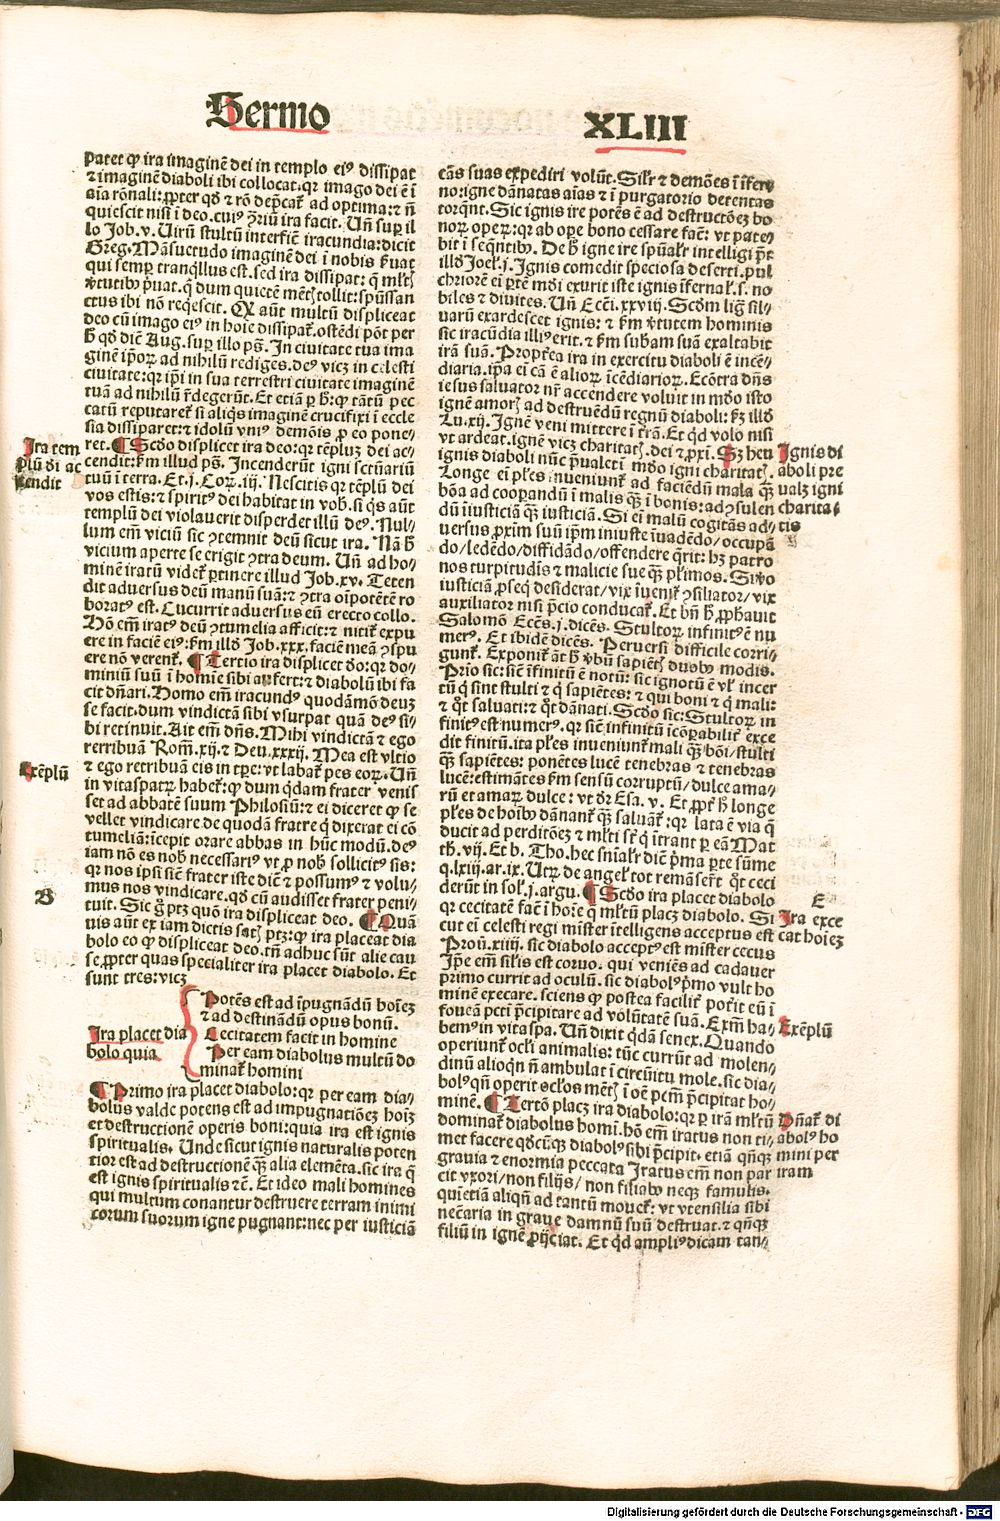 Sermo
XLIII
patet ꝙ ira imaginē dei in templo eiꝰ dissipat
⁊ imaginē diaboli ibi collocat. qr imago dei ē ī
aīa rōnali: ꝓpter qđ ⁊ rō dep̄cat̄ ad optima: ⁊ nō
quiescit nisi ī deo. cuiꝰ ꝯriū ira facit. Un̄ suꝑ il
lo Job. v. Uirū stultū interficit iracundia: dicit
Greg. Māsuetudo imaginē dei ī nobis seruat
qui semꝑ tranq̄llus est. sed ira dissipat: q̄
v̄tutibꝰ p̄uat. q̄ dum quietē mētis tollit: spūssan
ctus ibi nō reqescit. Q aūt multū displiceat
deo cū imago eiꝰ in hoīe dissipat̄. ostēdi pōt per
h̄ qđ dic̄ Aug. suꝑ illo ps̄. In ciuitate tua ima
ginē ip̄oꝝ ad nihilū rediges. deꝰ vicꝫ in celesti
ciuitate: qr ip̄i in sua terrestri ciuitate imaginē
tuā ad nihilū r̄degerūt. Et etiā ꝑ h̄: ꝙ tātū pec
catū reputaret̄ si aliq̄s imaginē crucifixi ī eccle
sia dissiparet: ⁊ idolū vniꝰ demōis ꝓ eo pone
ret. ¶ Scđo displicet ira deo: qr tēpluꝫ dei ac
cendit: fm illud ps̄. Incenderūt igni sctūariū
tuū ī terra. Et. j. Coꝝ. iij. Nescitis qr tēplū dei
vos estis: ⁊ spiritꝰ dei habitat in vob̄. si q̄s aūt
templū dei violauerit disperdet illū deꝰ. Nul
lum em̄ viciū sic ꝯtemnit deū sicut ira. Nā h̄
vicium aperte se erigit ꝯtra deum. Un̄ ad ho
minē iratū videt̄ ꝑtinere illud Job. xv. Teten
dit aduersus deū manū suā: ⁊ ꝯtra oīpotētē ro
boratꝰ est. Cucurrit aduersus eū erecto collo.
Hō em̄ iratꝰ deū ꝯtumelia afficit: ⁊ nitit̄ expu
ere in faciē eiꝰ: fm illđ Job. xxx. faciē meā ꝯspu
ere nō verent̄. ¶ Tertio ira displicet deo: qr do
miniū suū ī homine sibi aufert: ⁊ diabolū ibi fa
cit dn̄ari. Homo em̄ iracundꝰ quodāmō deuꝫ
se facit. dum vindictā sibi vsurpat quā deꝰ si
bi retinuit. Ait em̄ dn̄s. Mihi vindictā ⁊ ego
retribuā Rom̄. xij. ⁊ Deu. xxxij. Mea est vltio
⁊ ego retribuā eis in tp̄e: vt labat̄ pes eoꝝ. Un̄
in vitaspatꝝ habet̄: ꝙ dum qđam frater venis
set ad abbatē suum Philosiū: ⁊ ei diceret ꝙ se
vellet vindicare de quodā fratre q̄ dixerat ei cō
tumeliā: īcepit orare abbas in hūc modū. deꝰ
iam nō es nob̄ necessariꝰ vt ꝓ nob̄ sollicitꝰ sis:
qr nos ipsi sicut frater iste dic̄ ⁊ possumꝰ ⁊ volu
mus nos vindicare. qđ cū audisset frater peni
tuit. Sic g̊ ptꝫ quō ira displiceat deo. ¶ Quā
uis aūt ex iam dictis satꝭ ptꝫ: ꝙ ira placeat dia
bolo eo ꝙ displiceat deo. tn̄ adhuc sūt alie cau
se. ꝓpter quas specialiter ira placet diabolo. Et
sunt tres: vicꝫ
Ira placet dia
bolo quia
Potēs est ad īpugnādū hoīeꝫ
⁊ ad destinādū opus bonū.
Cecitatem facit in homine
Per eam diabolus multū do
minat̄ homini
¶ Primo ira placet diabolo: qr per eam dia
bolus valde potens est ad impugnatiōeꝫ hoīꝫ
et destructionē operis boni: quia ira est ignis
spiritualis. Unde sicut ignis naturalis poten
tior est ad destructionē q̄ꝫ alia elemēta. sic ira q̄
est ignis spiritualis ⁊ē. Et ideo mali homines
qui multum conantur destruere terram inimi
corum suorum igne pugnant: nec per iusticiā
Ira tem
plū dī ac
cendit
Exēplū
B
cās suas expediri volūt. Silr̄ ⁊ demōes ī īfer
no: igne dānatas aīas ⁊ ī purgatorio detentas
torq̄nt. Sic ignis ire potēs ē ad destructōeꝫ bo
noꝝ operꝝ: qr ab oꝑe bono cessare fac̄: vt pate
bit ī seq̄ntibꝰ. De h̄ igne ire spūalr̄ intelligi pt̄
illđ Joel̄. j. Ignis comedit speciosa deserti. pul
chriorē ei ꝑtē mūdi exurit iste ignis īfernal̄. s. no
biles ⁊ diuites. Un̄ Ecci. xxviij. Scđm liḡ sil
uarū exardescet ignis: ⁊ fm v̄tutem hominis
sic iracūdia illiꝰ erit. ⁊ fm subam suā exaltabit
irā suā. Propt̄ea ira in exercitu diaboli ē incē
diaria. ip̄a ei cā ē alioꝝ īcēdiarioꝝ. Ecōtra dn̄s
iesus saluator nr̄ accendere voluit in mūdo isto
ignē amorꝭ ad destruēdū regnū diaboli: fꝫ illđ
Lu. xij. Ignē veni mittere ī t̄rā. Et qđ volo nisi
vt ardeat. ignē vicꝫ charitatꝭ. dei ⁊ ꝓxi. Sꝫ heu
ignis diaboli nūc p̄ualet ī mūdo igni charitatꝭ.
Longe ei ples īueniunt̄ ad faciēdū mala q̄ꝫ
bōa ad cooꝑandū ī malis q̄ꝫ ī bonis: ad ꝯsulen
dū iniusticiā q̄ꝫ iusticiā. Si ei malū cogitās ad
uersus ꝓxim̄ suū ip̄m iniuste īuadēdo / occupā
do / ledēdo / diffidādo / offendere q̄rit: hꝫ patro
nos turpitudīs ⁊ malicie sue q̄ꝫ pl̄imos. Si v̄o
iusticiā ꝓseq̄ desiderat / vix īuenit̄ ꝯsiliator / vix
auxiliator nisi p̄cio conducat̄. Et bn̄ h̄ ꝓbauit
Salomō Ecc̄s. j. dicēs. Stultoꝝ infinitꝰ ē nu
merꝰ. Et ibidē dicēs. Peruersi difficile corri
gunt̄. Exponit̄ āt h̄ v̄bū sapiētꝭ duobꝰ modis.
Prīo sic: sicut īfinitū ē notū: sic ignotū ē vl̄ incer
tū q̄ sint stulti ⁊ q̄ sapiētes: ⁊ qui boni ⁊ q̄ mali:
⁊ q̊t saluati: ⁊ q̊t dānati. Scđo sic: Stultoꝝ in
finitꝰ est numerꝰ. qr sicut infinitū īcōꝑabilit̄ exce
dit finitū. ita ples inueniunt̄ mali q̄ꝫ bōi / stulti
q̄ꝫ sapiētes: ponētes lucē tenebras ⁊ tenebras
lucē: estimātes fm sensū corruptū / dulce ama
rū et amaꝝ dulce: vt dr̄ Esa. v. Et ꝓpt̄ h̄ longe
ples de hoībꝰ dānant̄ q̄ꝫ saluant̄: qr lata ē via q̄
ducit ad perditōeꝫ ⁊ ml̄ti sūt q̄ ītrant per eā Mat
th. vij. Et b. Tho. hec sn̄ialr̄ dic̄ p̄ma ꝑte sūme
q. lxiij. ar. ix. Utꝝ de angel̄ tot remāser̄t q̊t ceci
derūt in sol̄. j. argu. ¶ Scđo ira placet diabolo
qr cecitatē fac̄ ī hoīe q̄ ml̄tū placꝫ diabolo. Si
cut ei celesti regi mister ītelligens acceptus est
Prou̅. xiiij. sic diabolo acceptꝰ est mīster cecus
Ip̄e em̄ silis est coruo. qui veniēs ad cadauer
primo currit ad oculū. sic diabolꝰ p̄mo vult ho
minē execare. sciens ꝙ postea facilit̄ poterit eū ī
foueā pctī p̄cipitare ad volūtatē suā. Exm̄ ha
bemꝰ in vitaspa. Un̄ dixit qđā senex. Quando
operiunt̄ ocl̄i animalis: tūc currūt ad molen
dinū alioqn̄ n̄ ambulat ī circūitu mole. sic dia
bolꝰ qn̄ operit ocl̄os mētꝭ ī oē pctm̄ p̄cipitat ho
minē. ¶ Tertō placꝫ ira diabolo: qr ꝑ irā ml̄tū
dominat̄ diabolus homi. hō em̄ iratus non ti
met facere qđcūqꝫ diabolꝰ sibi p̄cipit. etiā qn̄qꝫ
grauia ⁊ enormia peccata Iratus em̄ non par
cit vxori / non filijs / non filiabꝰ neqꝫ famulis.
qui etiā aliqn̄ ad tantū mouet̄: vt vtensilia sibi
necāria in graue damnū suū destruat. ⁊ qn̄qꝫ
filiū in ignē ꝓijciat. Et qđ ampliꝰ dicam tan
Ignis di
aboli pre
ualꝫ igni
charita
tis
E
Ira exce
cat hoīeꝫ
Exēplū
Dn̄at̄ di
abolꝰ ho
mini per
iram
Digitalisierung gefördert durch die Deutsche Forschungsgemeinschaft - DFG